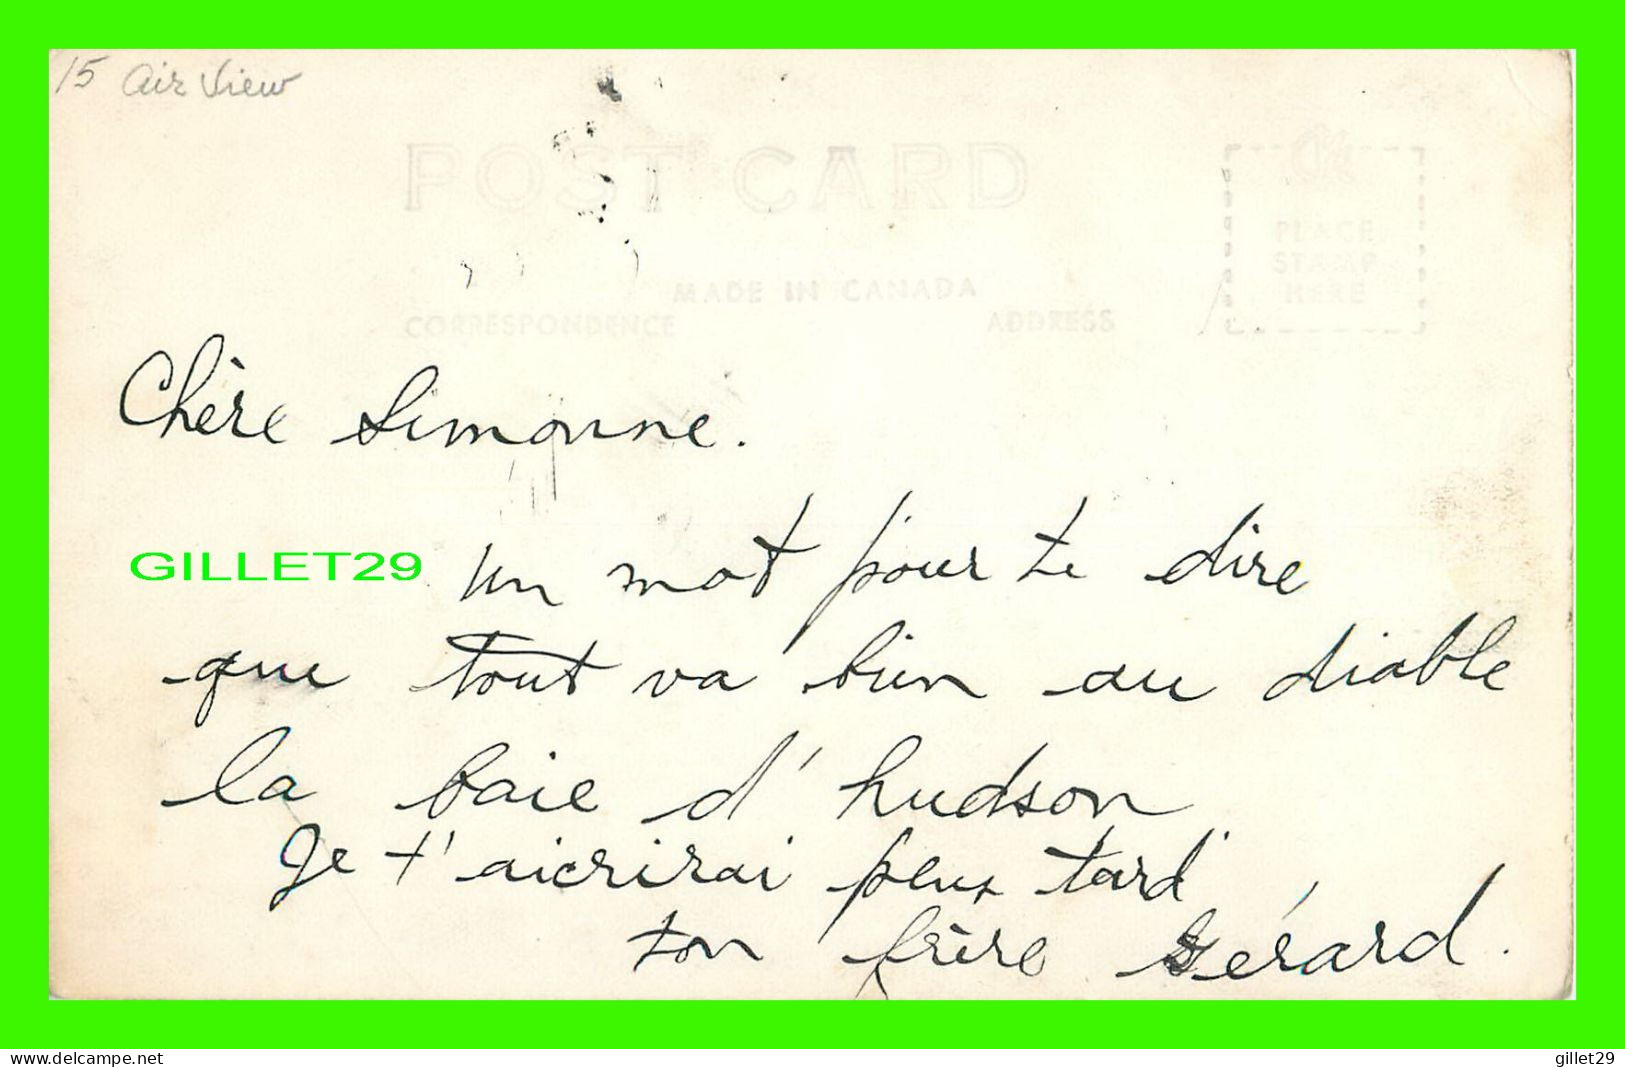 15 Air View
POST CARD
PLACE
STAMP
HERE
MADE IN CANADA
CORRESPONDENCE ADDRESS
Chère Simonne.
GILLET29
Un mot pour te dire
que tout va bien au diable
la baie d'hudson
Je t'aicrirai peux tard
ton frère Gérard.
www.delcampe.net
gillet29